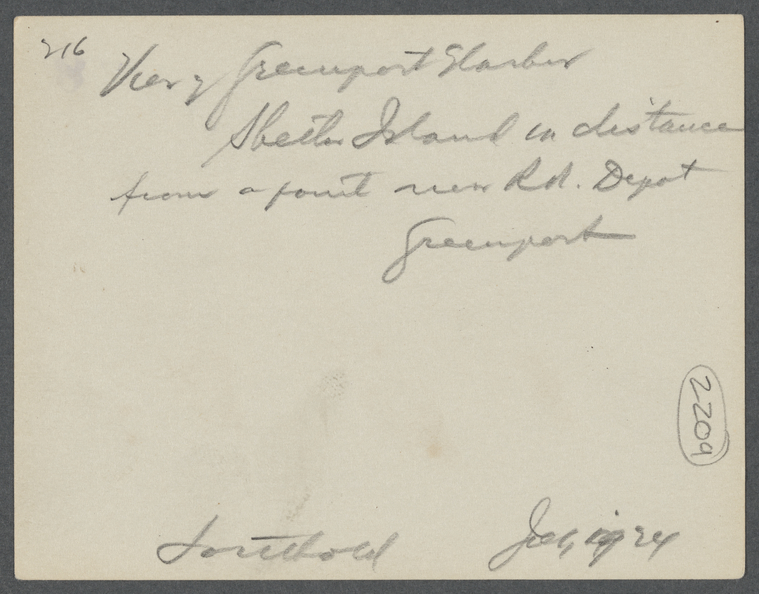 216
View of Greenport Harbor
Shelter Island in distance
from a point near R.R. Depot
Greenport
2209
Southold July 1924